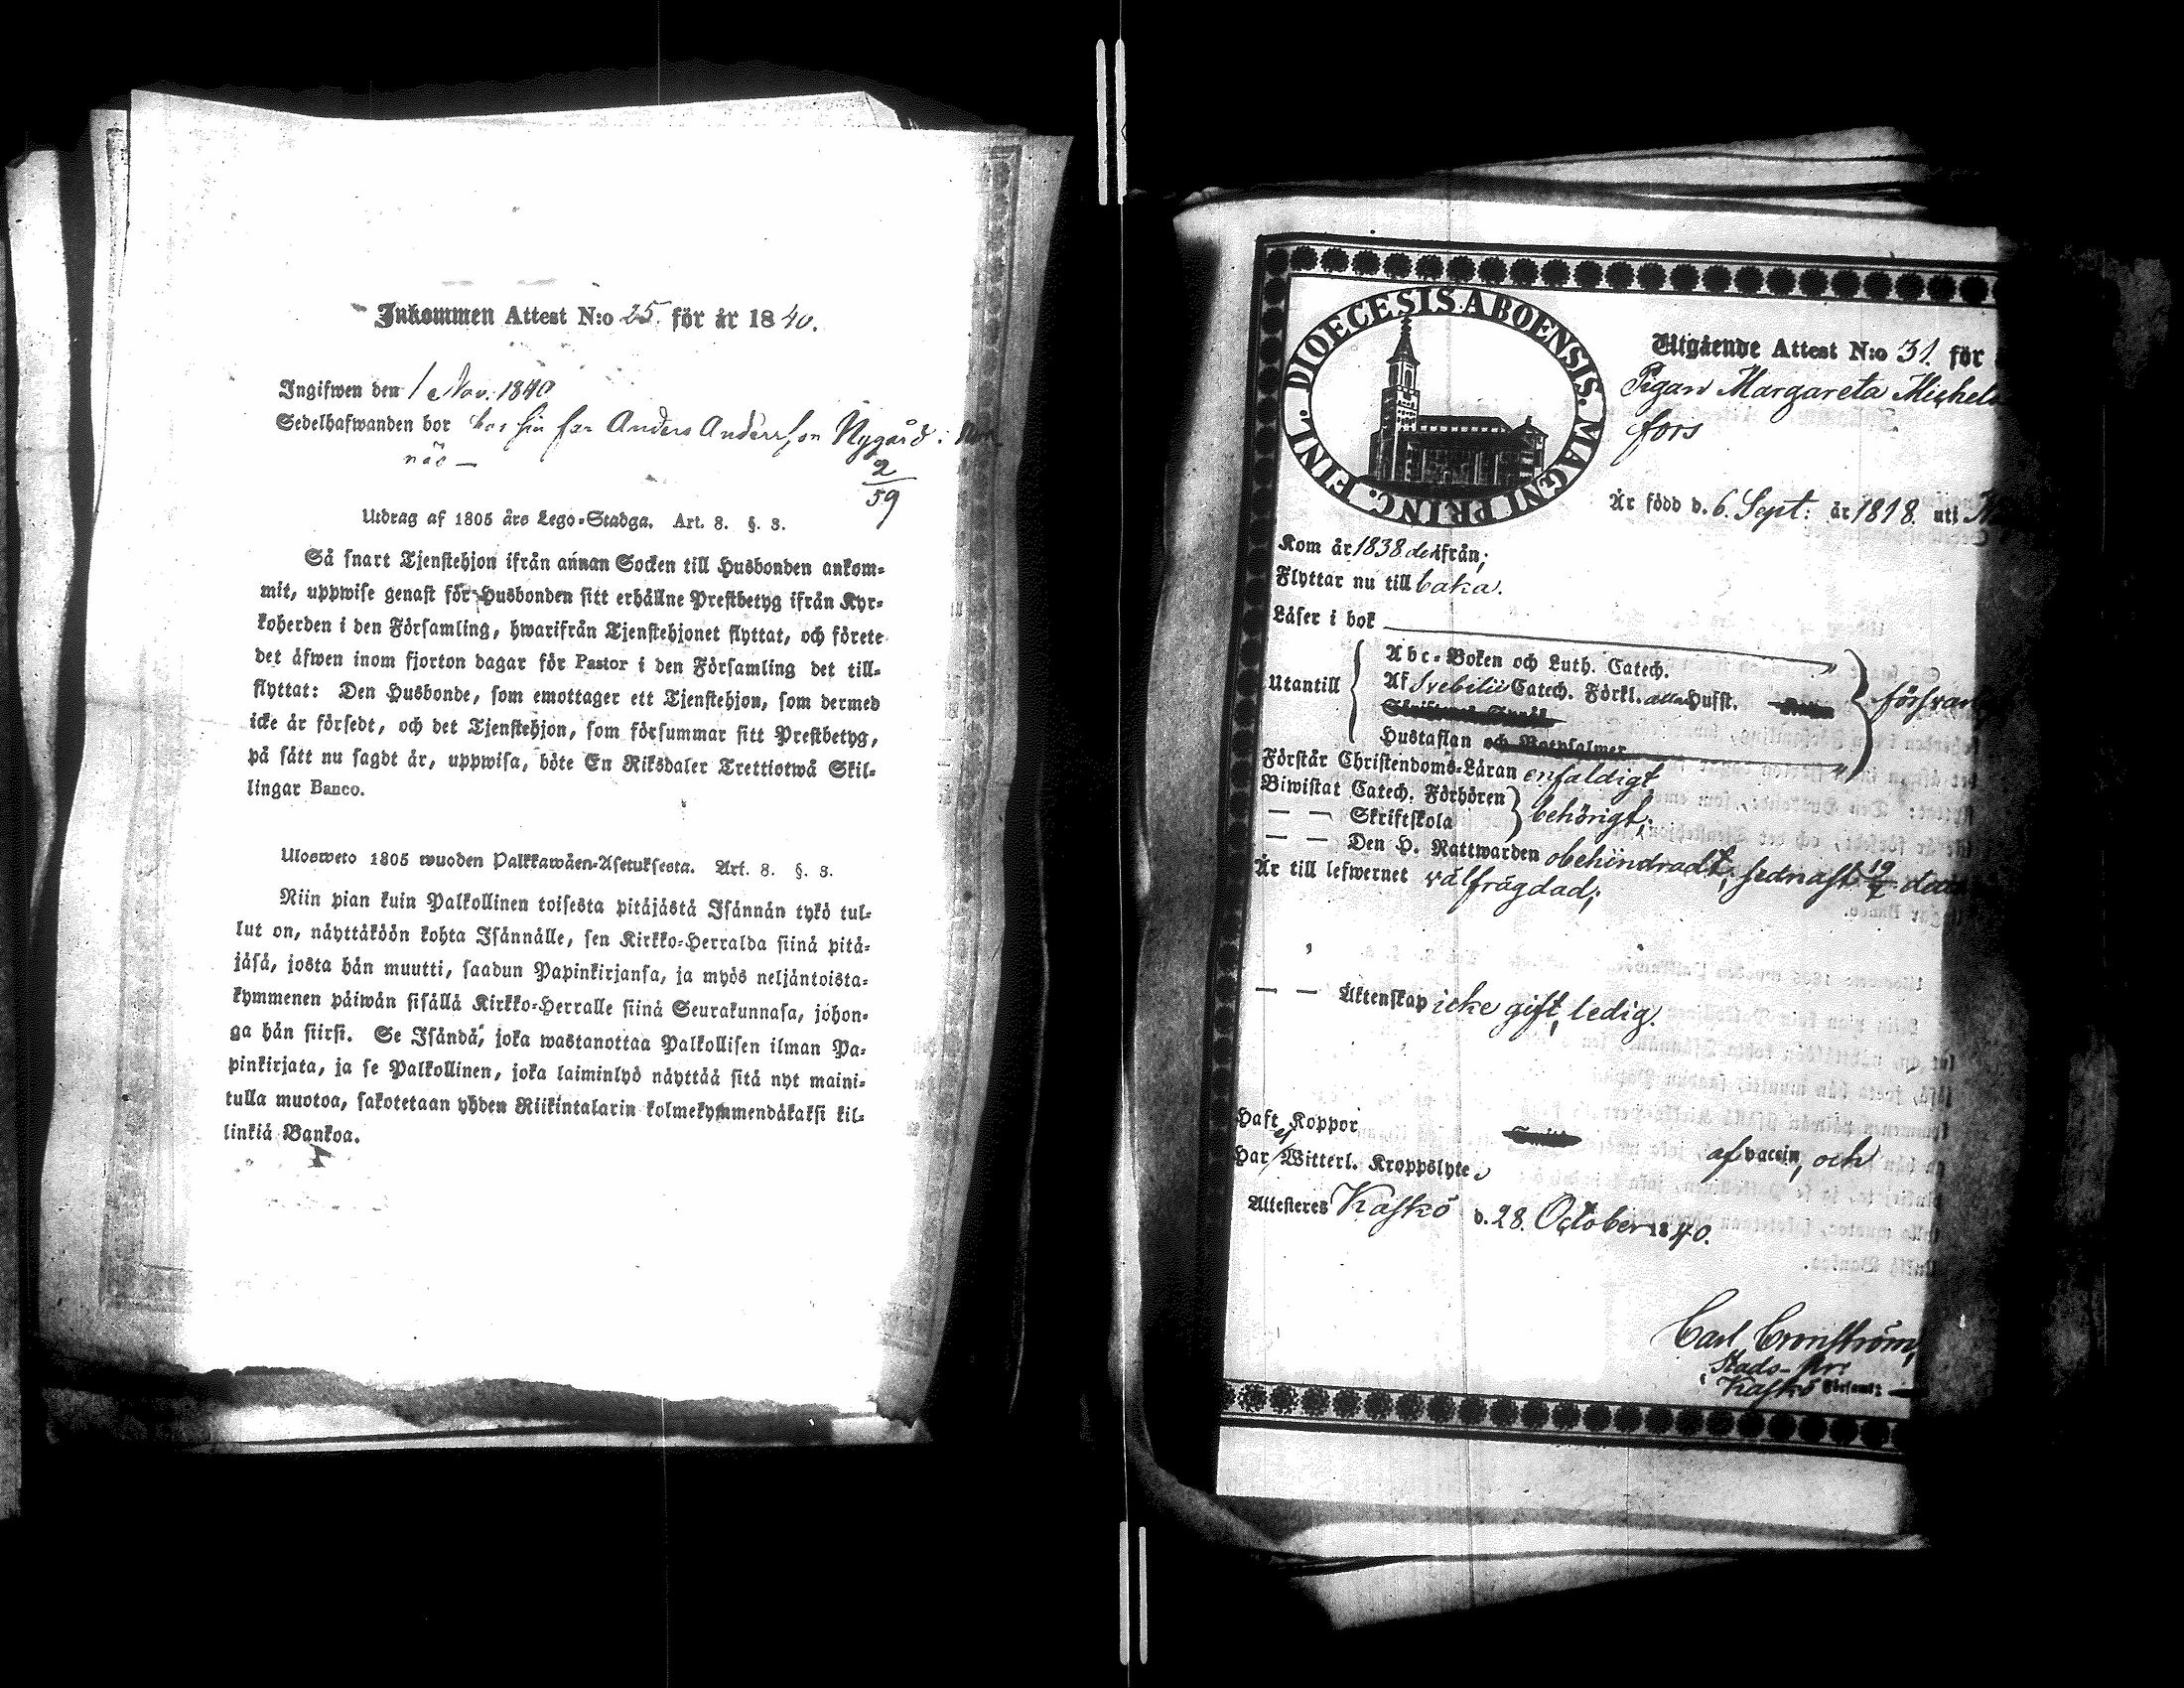 Inkommen Attest N:o 25. för år 1840.
Ingifwen den 1 Nov. 1840
Sedelhafwanden bor hos sin far Anders Andersson Nygård i
näs —
2
59
Utdrag af 1805 års Lego-Stadga. Art. 8. §. 3.
Så snart Tjenstehjon ifrån annan Socken till Husbonden ankom-
mit, uppwise genast för Husbonden sitt erhållne Prestbetyg ifrån Kyr-
koherden i den Församling, hwarifrån Tjenstehjonet flyttat, och förete
det äfwen inom fjorton dagar för Pastor i den Församling det till-
flyttat: Den Husbonde, som emottager ett Tjenstehjon, som dermed
icke är försedt, och det Tjenstehjon, som försummar sitt Prestbetyg,
på sätt nu sagdt är, uppwisa, böte En Riksdaler Trettiotwå Skil-
lingar Banco.
Ulosweto 1805 wuoden Palkkawäen-Asetuksesta. Art. 8. §. 3.
Niin pian kuin Palkollinen toisesta pitäjästä Isännän tykö tul-
lut on, näyttäköön kohta Isännälle, sen Kirkko-Herralda siinä pitä-
jäsä, josta hän muutti, saadun Papinkirjansa, ja myös neljäntoista-
kymmenen päiwän sisällä Kirkko-Herralle siinä Seurakunnasa, johon-
ga hän siirsi. Se Isändä, joka wastanottaa Palkollisen ilman Pa-
pinkirjata, ja se Palkollinen, joka laiminlyö näyttää sitä nyt maini-
tulla muotoa, sakotetaan yhden Riikintalarin kolmekymmendäkaksi kil-
linkiä Bankoa.
FINL. DIOECESIS ABOENSIS. MAGNI PRINC.
Utgående Attest N:o 31. för
Pigan Margareta Michels
fors
Är född d. 6. Sept: år 1818. uti
Kom år 1838 derifrån;
Flyttar nu till baka.
Läser i bok
Utantill
Abc-Boken och Luth. Catech.
Af Svebilii Catech. Förkl. Husft.
Hustaflan och Botpsalmer
Förstår Christendoms-Läran enfaldigt,
Biwistat Catech. Förhören
— — Skriftskola
behörigt;
— — Den H. Nattwarden obehindradt, sednast
Är till lefwernet välfrägdad;
— — Äktenskap icke gift, ledig.
Haft Koppor af vaccin, och
Har ej Witterl. Kroppslyte
Attesteres Kaskö d. 28. October 1840.
Carl Cronström,
Stads-
Kaskö Församl: